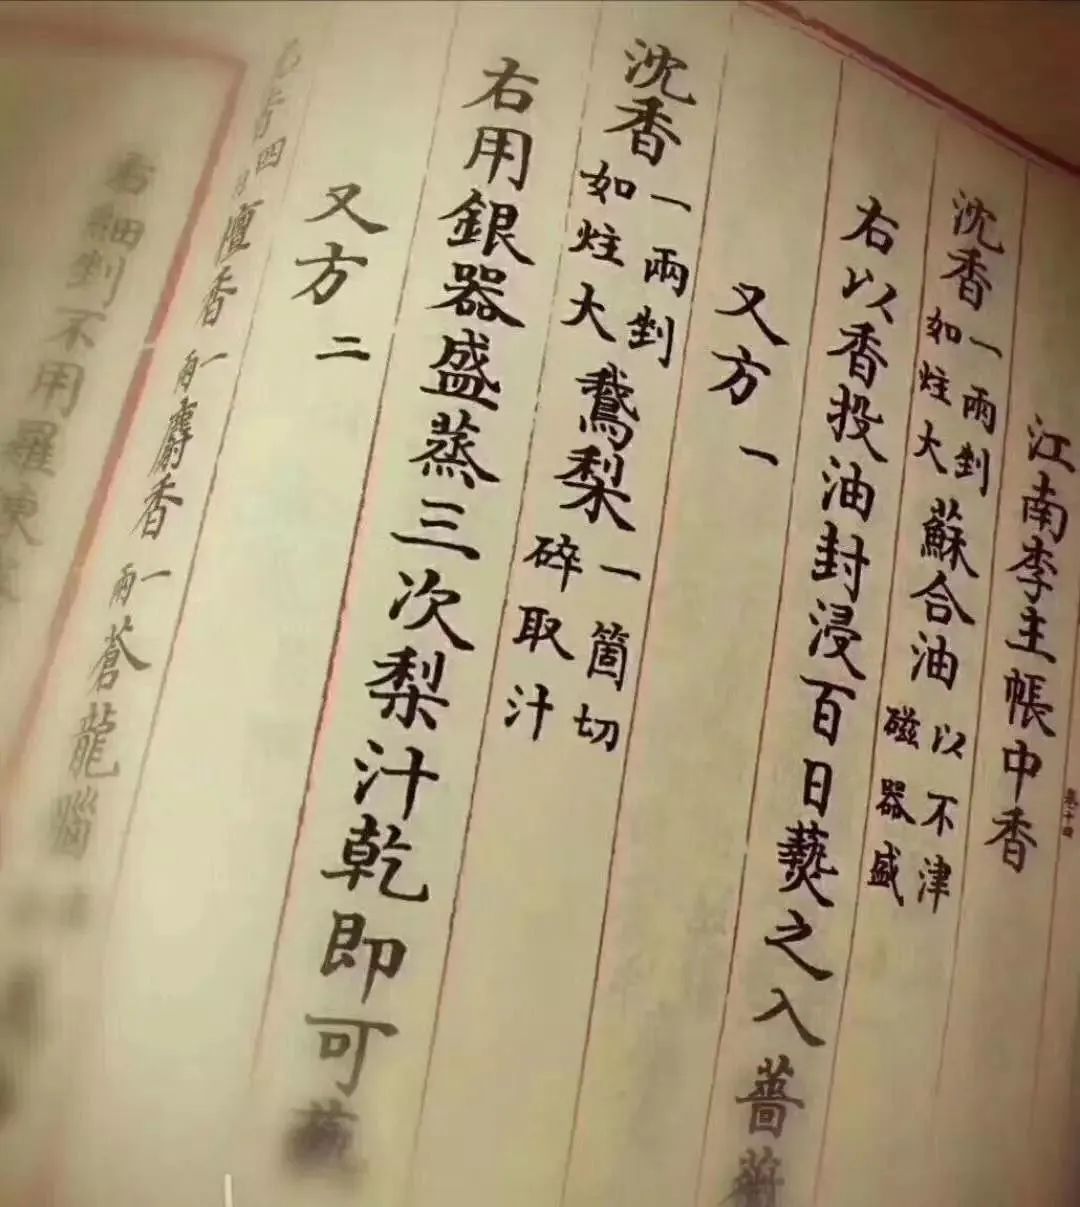 卷十四
江南李主帳中香
沈香一兩剉如炷大蘇合油以不津磁器盛
右以香投油封浸百日爇之入薔薇
又方一
沈香一兩剉如炷大鵞梨一箇切碎取汁
右用銀器盛蒸三次梨汁乾即可爇
又方二
香四兩檀香一兩麝香一兩蒼龍腦
右細剉不用羅